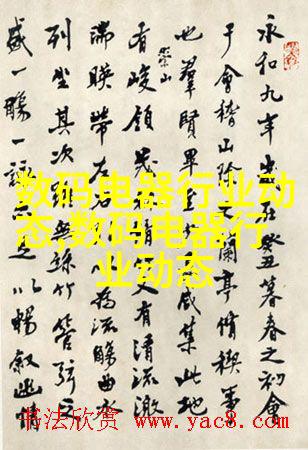 永和九年在癸暮春之初會
于會稽山陰之蘭亭脩稧事
也羣賢畢至咸集此地
有崇山峻領茂又有清流激
湍暎帶左右為流觴曲水
列坐其次無絲竹管弦之
盛一觴一詠以暢叙幽情
数码电器行业动
态,数码电器行
业动态
书法欣赏 www.yac8.com